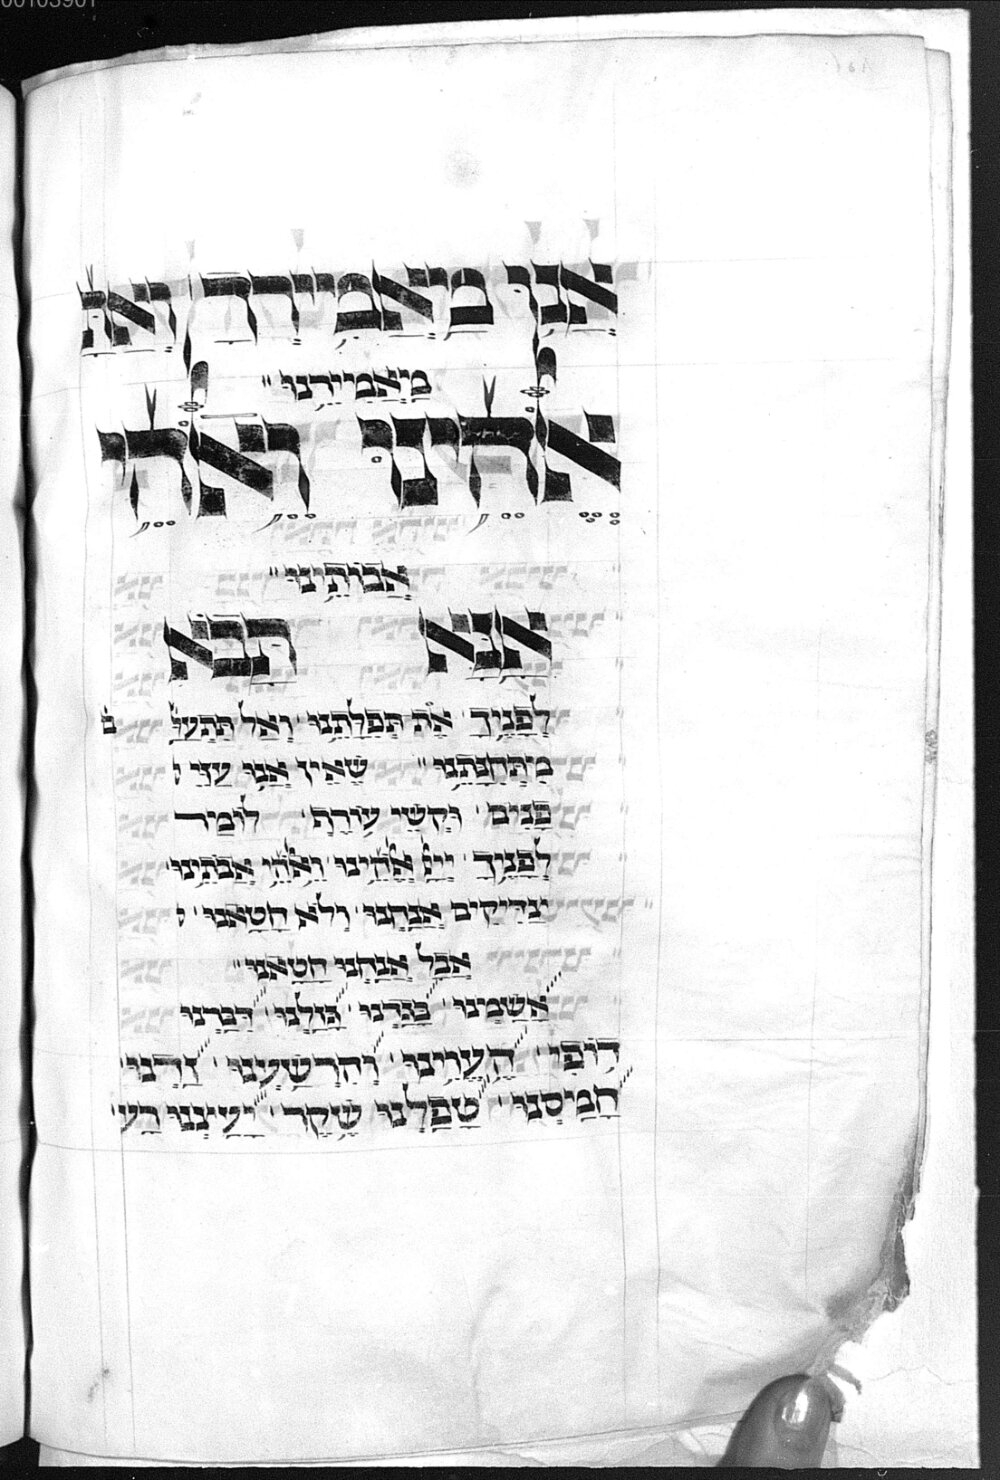 00103901
אנו מיאמיריך ואת
מיאמיירנו
אלהינו ואלהי
אבותינו
אנא תבא
לפניך את תפלתנו ואל תתעל ם
מתחנתנו שאין אנו עזי
פנים וקשי עורף לומיר
לפניך ייי אלהינו ואלהי אבתינו
צדיקים אנחנו ולא חטאנו
אבל אנחנו חטאנו
אשמנו בגדנו גזלנו דברנו
דופי העוינו והרשענו זדנו
חמיסנו טפלנו שקר יעיצנו רע